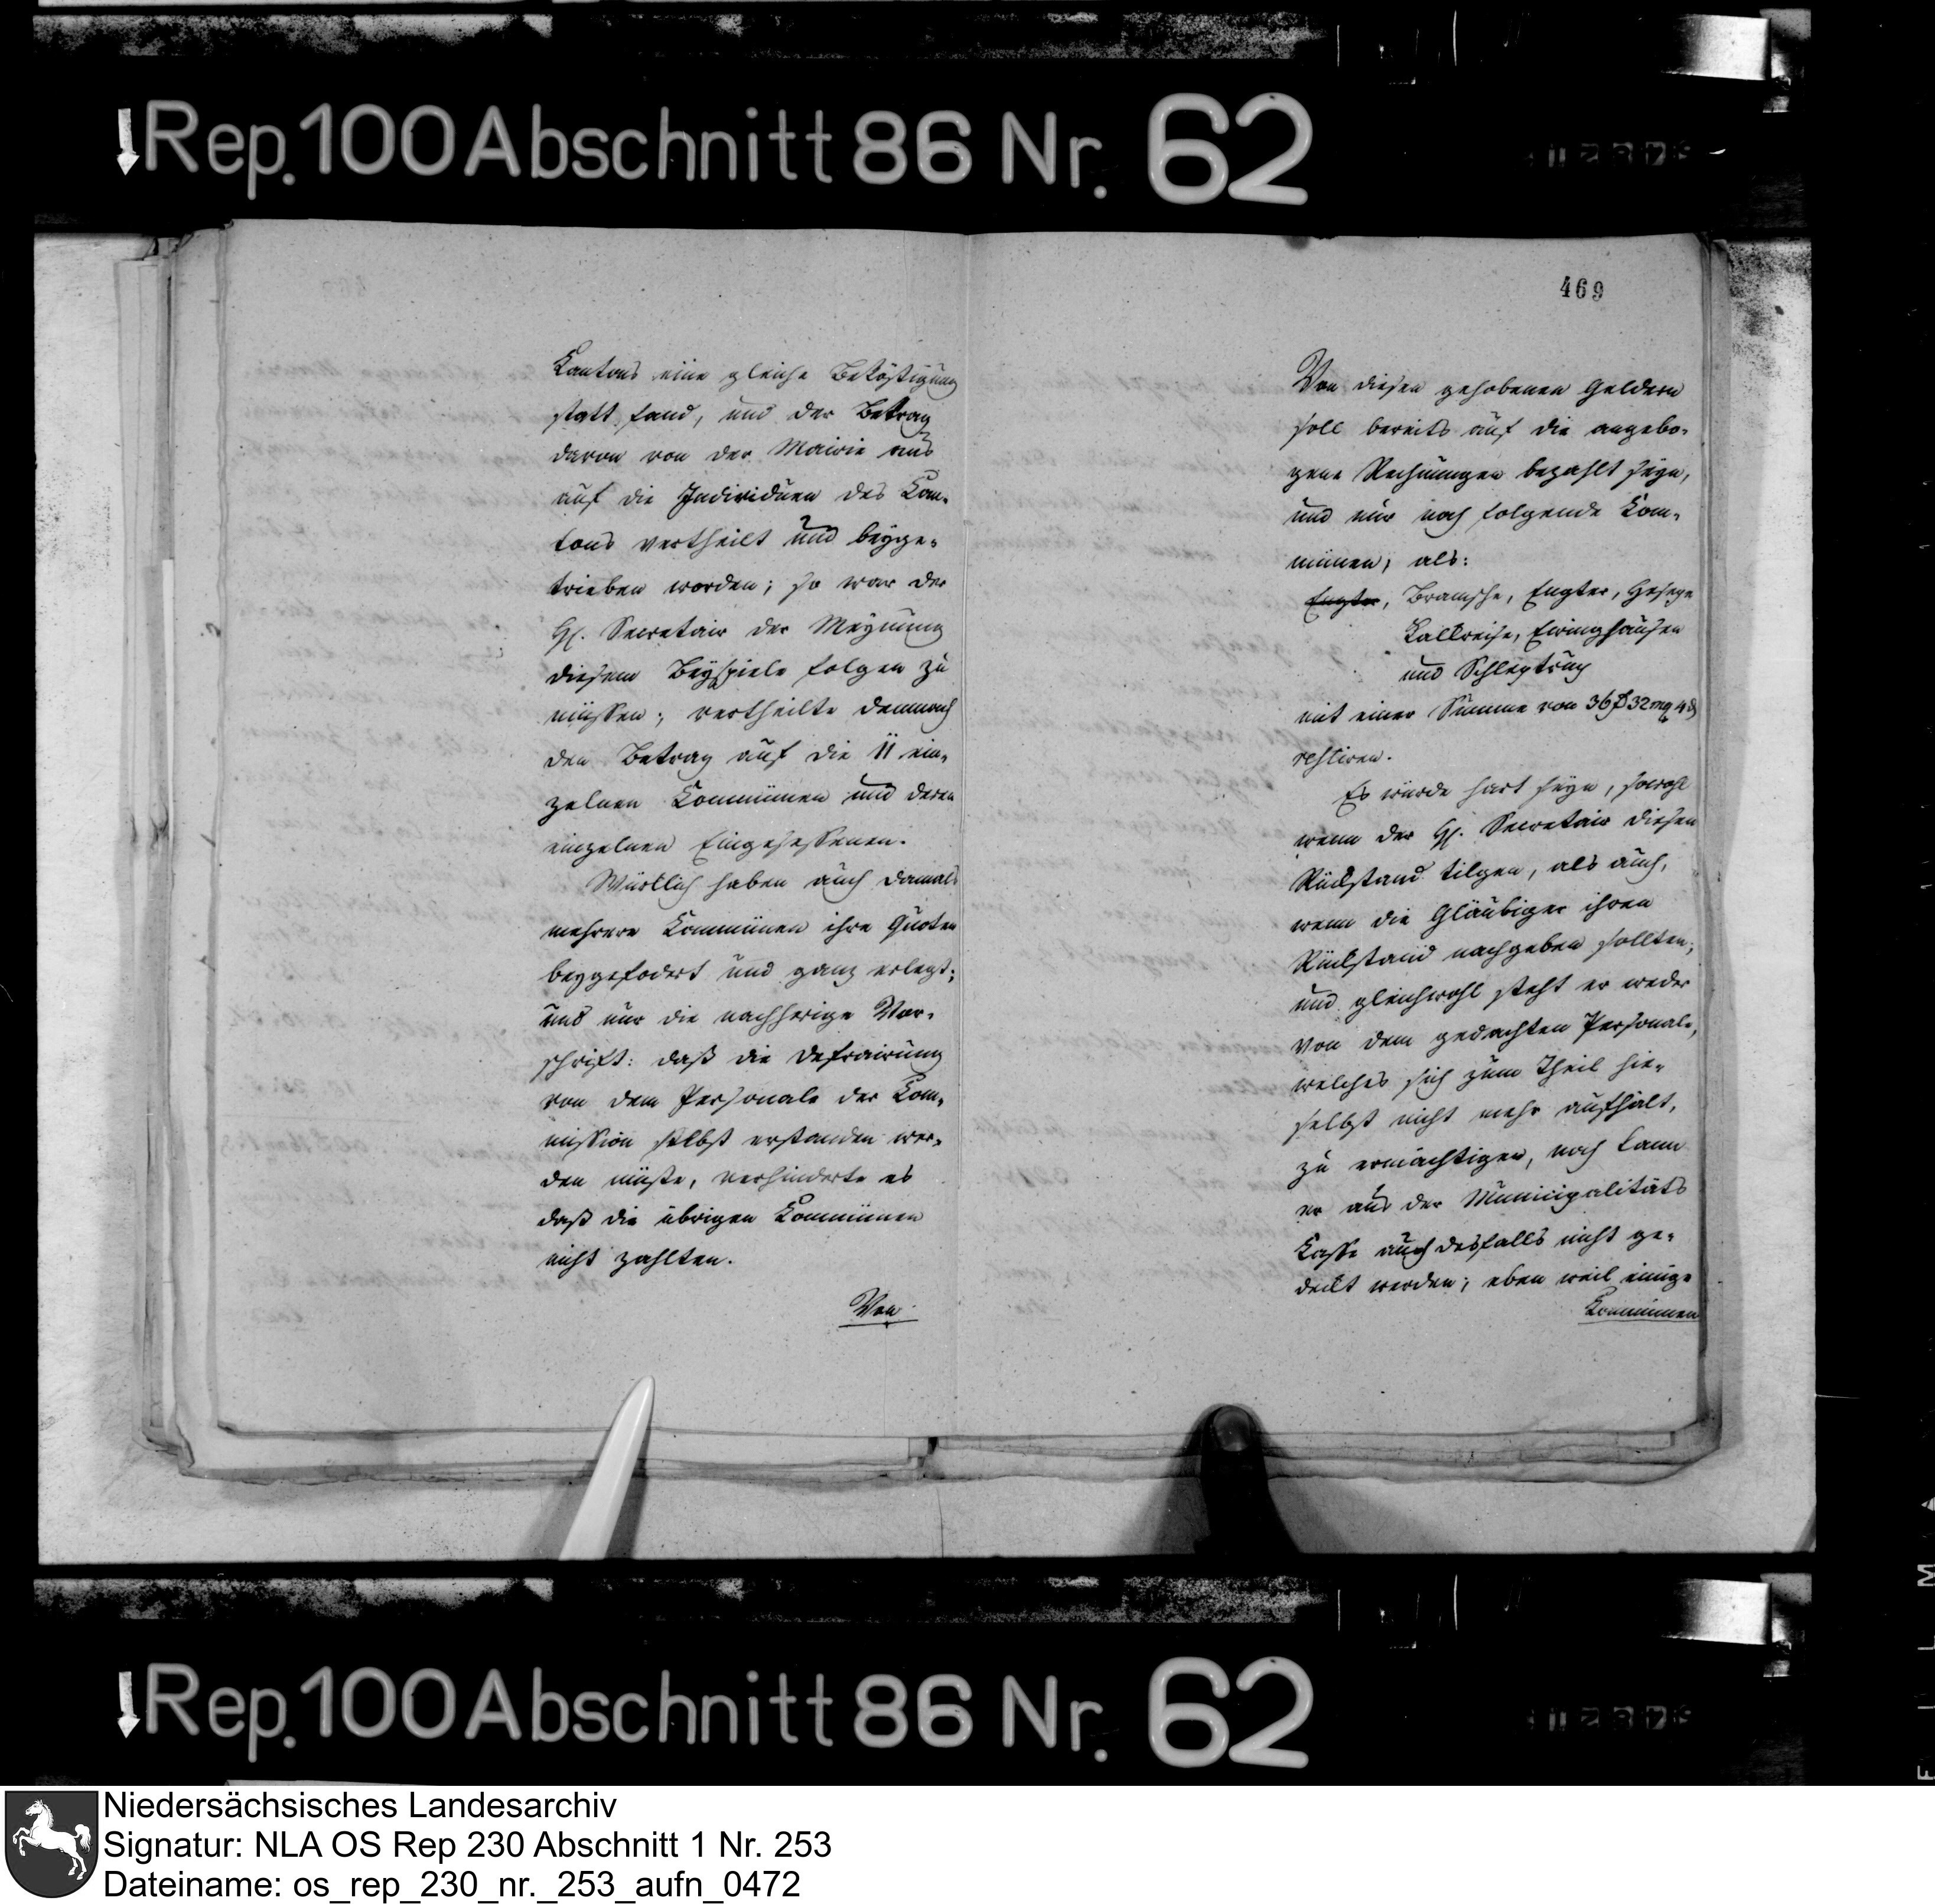 Rep. 100 Abschnitt 86 Nr. 62
Kantons eine gleiche Beköstigung
statt fand, und der Betrag
davon von der Mairie aus
auf die Individuen des Kan-
tons vertheilt und beyge-
trieben worden; so war der
H. Secretair der Meynung
diesem Beyspiele folgen zu
müssen; vertheilte demnach
den Betrag auf die 11 ein-
zelnen Kommünen und deren
einzelnen Eingesessenen.
Würklich haben auch damals
mehrere Kommünen ihre Quoten
beygefodert und ganz erlegt;
und nur die nachherige Vor-
schrift: daß die Defrairung
von dem Personale der Kom-
mission selbst erstanden wer-
den müßte, verhinderte es
daß die übrigen Kommünen
nicht zahlten.
Von
469
Von diesen gehobenen Geldern
soll bereits auf die angebo-
gene Rechnungen bezahlt seyn,
und nur noch folgende Kom-
münen, als:
Engter, Bramsche, Engter, Hesepe
Kalkreise, Eeringhausen
und Schleptrup
mit einer Summe von 36 32 mg 4 d
restiren.
Es würde hart seyn, sowohl
wenn der H. Secretair diesen
Rückstand tilgen, als auch,
wenn die Gläubiger ihren
Rückstand nachgeben sollten;
und gleichwohl steht er weder
von dem gedachten Personale,
welches sich zum Theil hie-
selbst nicht mehr aufhält,
zu ermächtigen, noch kann
er aus der Municipalitäts
Kasse auch desfalls nicht ge-
deckt werden; eben weil einige
Kommünen
Rep. 100 Abschnitt 86 Nr. 62
Niedersächsisches Landesarchiv
Signatur: NLA OS Rep 230 Abschnitt 1 Nr. 253
Dateiname: os_rep_230_nr._253_aufn_0472